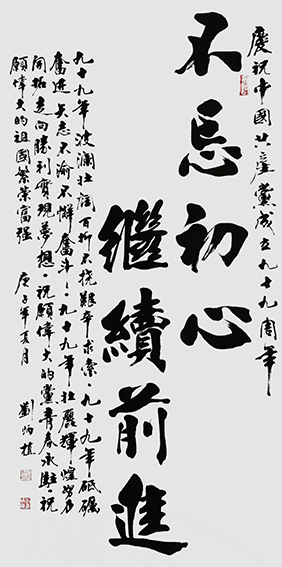 慶祝中國共產黨成立九十九周年
不忘初心
繼續前進
九十九年波瀾壮阔百折不挠艱辛求索、九十九年砥礪
奮進矢志不渝不懈奮斗、九十九年壮麗輝煌
開拓走向勝利實現夢想。祝願偉大的黨青春永駐、祝
願偉大的祖國繁榮富强
庚子年夏月
劉炳植